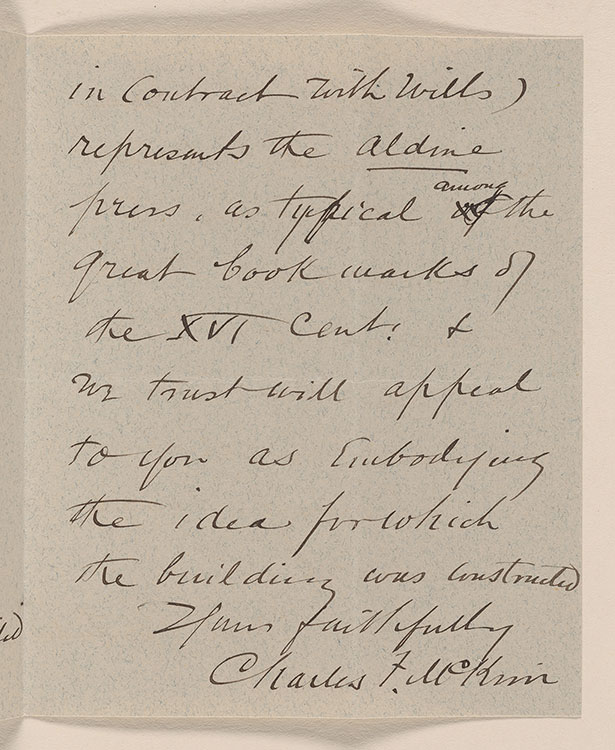 in Contract with Wills)
represents the Aldine
press, as typical among the
great book marks of
the XVI Cent: &
we trust will appeal
to you as Embodying
the idea for which
the building was constructed
Yours faithfully
Charles F. McKim